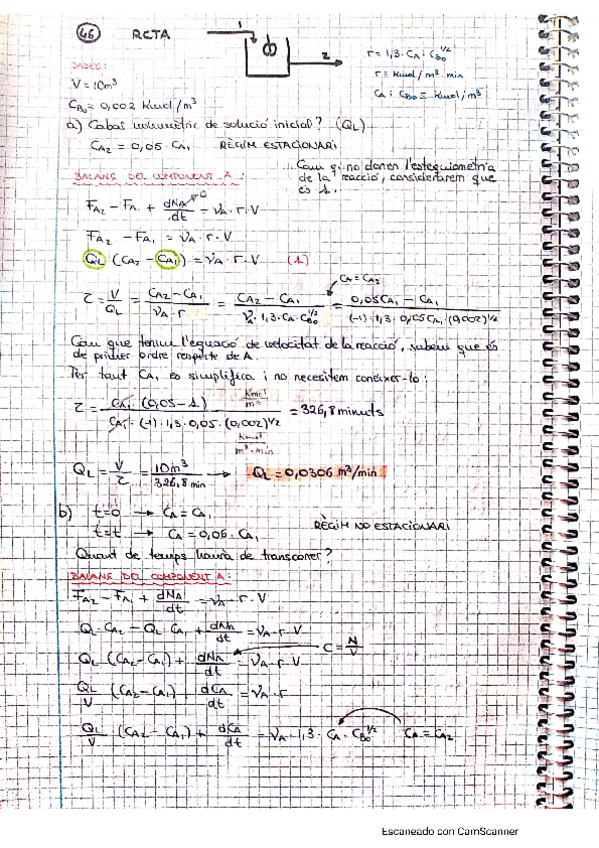 46 RCTA
1
2
r = 1,3 · CA · CBo^1/2
r ≡ Kmol/m³·min
CA i CBo ≡ Kmol/m³
DADES:
V = 10m³
CBo = 0,002 Kmol/m³
a) Cabal volumètric de solució inicial? (QL)
CA2 = 0,05 · CA1 RÈGIM ESTACIONARI
BALANÇ DEL COMPONENT A:
Com q no donen l'estequiometria
de la reacció, considerarem que
és 1.
FA2 - FA1 + dNA/dt = νA · r · V
FA2 - FA1 = νA · r · V
QL (CA2 - CA1) = νA · r · V (1)
CA = CA2
τ = V/QL = (CA2 - CA1)/(νA · r) = (CA2 - CA1)/(νA · 1,3 · CA · CBo^1/2) = (0,05CA1 - CA1)/((-1) · 1,3 · 0,05CA1 · (0,002)^1/2)
Com que tenim l'equació de velocitat de la reacció, sabem que és
de primer ordre respecte de A.
Per tant CA1 es simplifica i no necesitem conèixer-lo:
τ = (CA1 · (0,05 - 1))/(CA1 · (-1) · 1,3 · 0,05 · (0,002)^1/2) (Kmol/m³)/(Kmol/m³·min) = 326,8 minuts
QL = V/τ = 10m³/326,8 min → QL = 0,0306 m³/min
b) t=0 → CA = CA1
t=t → CA = 0,06 · CA1
RÈGIM NO ESTACIONARI
Quant de temps haurà de transcórrer?
BALANÇ DEL COMPONENT A:
FA2 - FA1 + dNA/dt = νA · r · V
QL · CA2 - QL · CA1 + dNA/dt = νA · r · V
C = N/V
QL (CA2 - CA1) + dNA/dt = νA · r · V
QL/V (CA2 - CA1) + dCA/dt = νA · r
QL/V (CA2 - CA1) + dCA/dt = νA · 1,3 · CA · CBo^1/2 CA = CA2
Escaneado con CamScanner